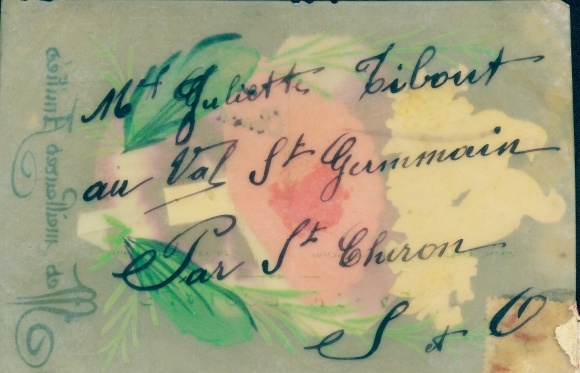 Mlle Juliette Tibout
au Val St Germmain
Par St Chéron
S et O
Mes Meilleures Amitiés